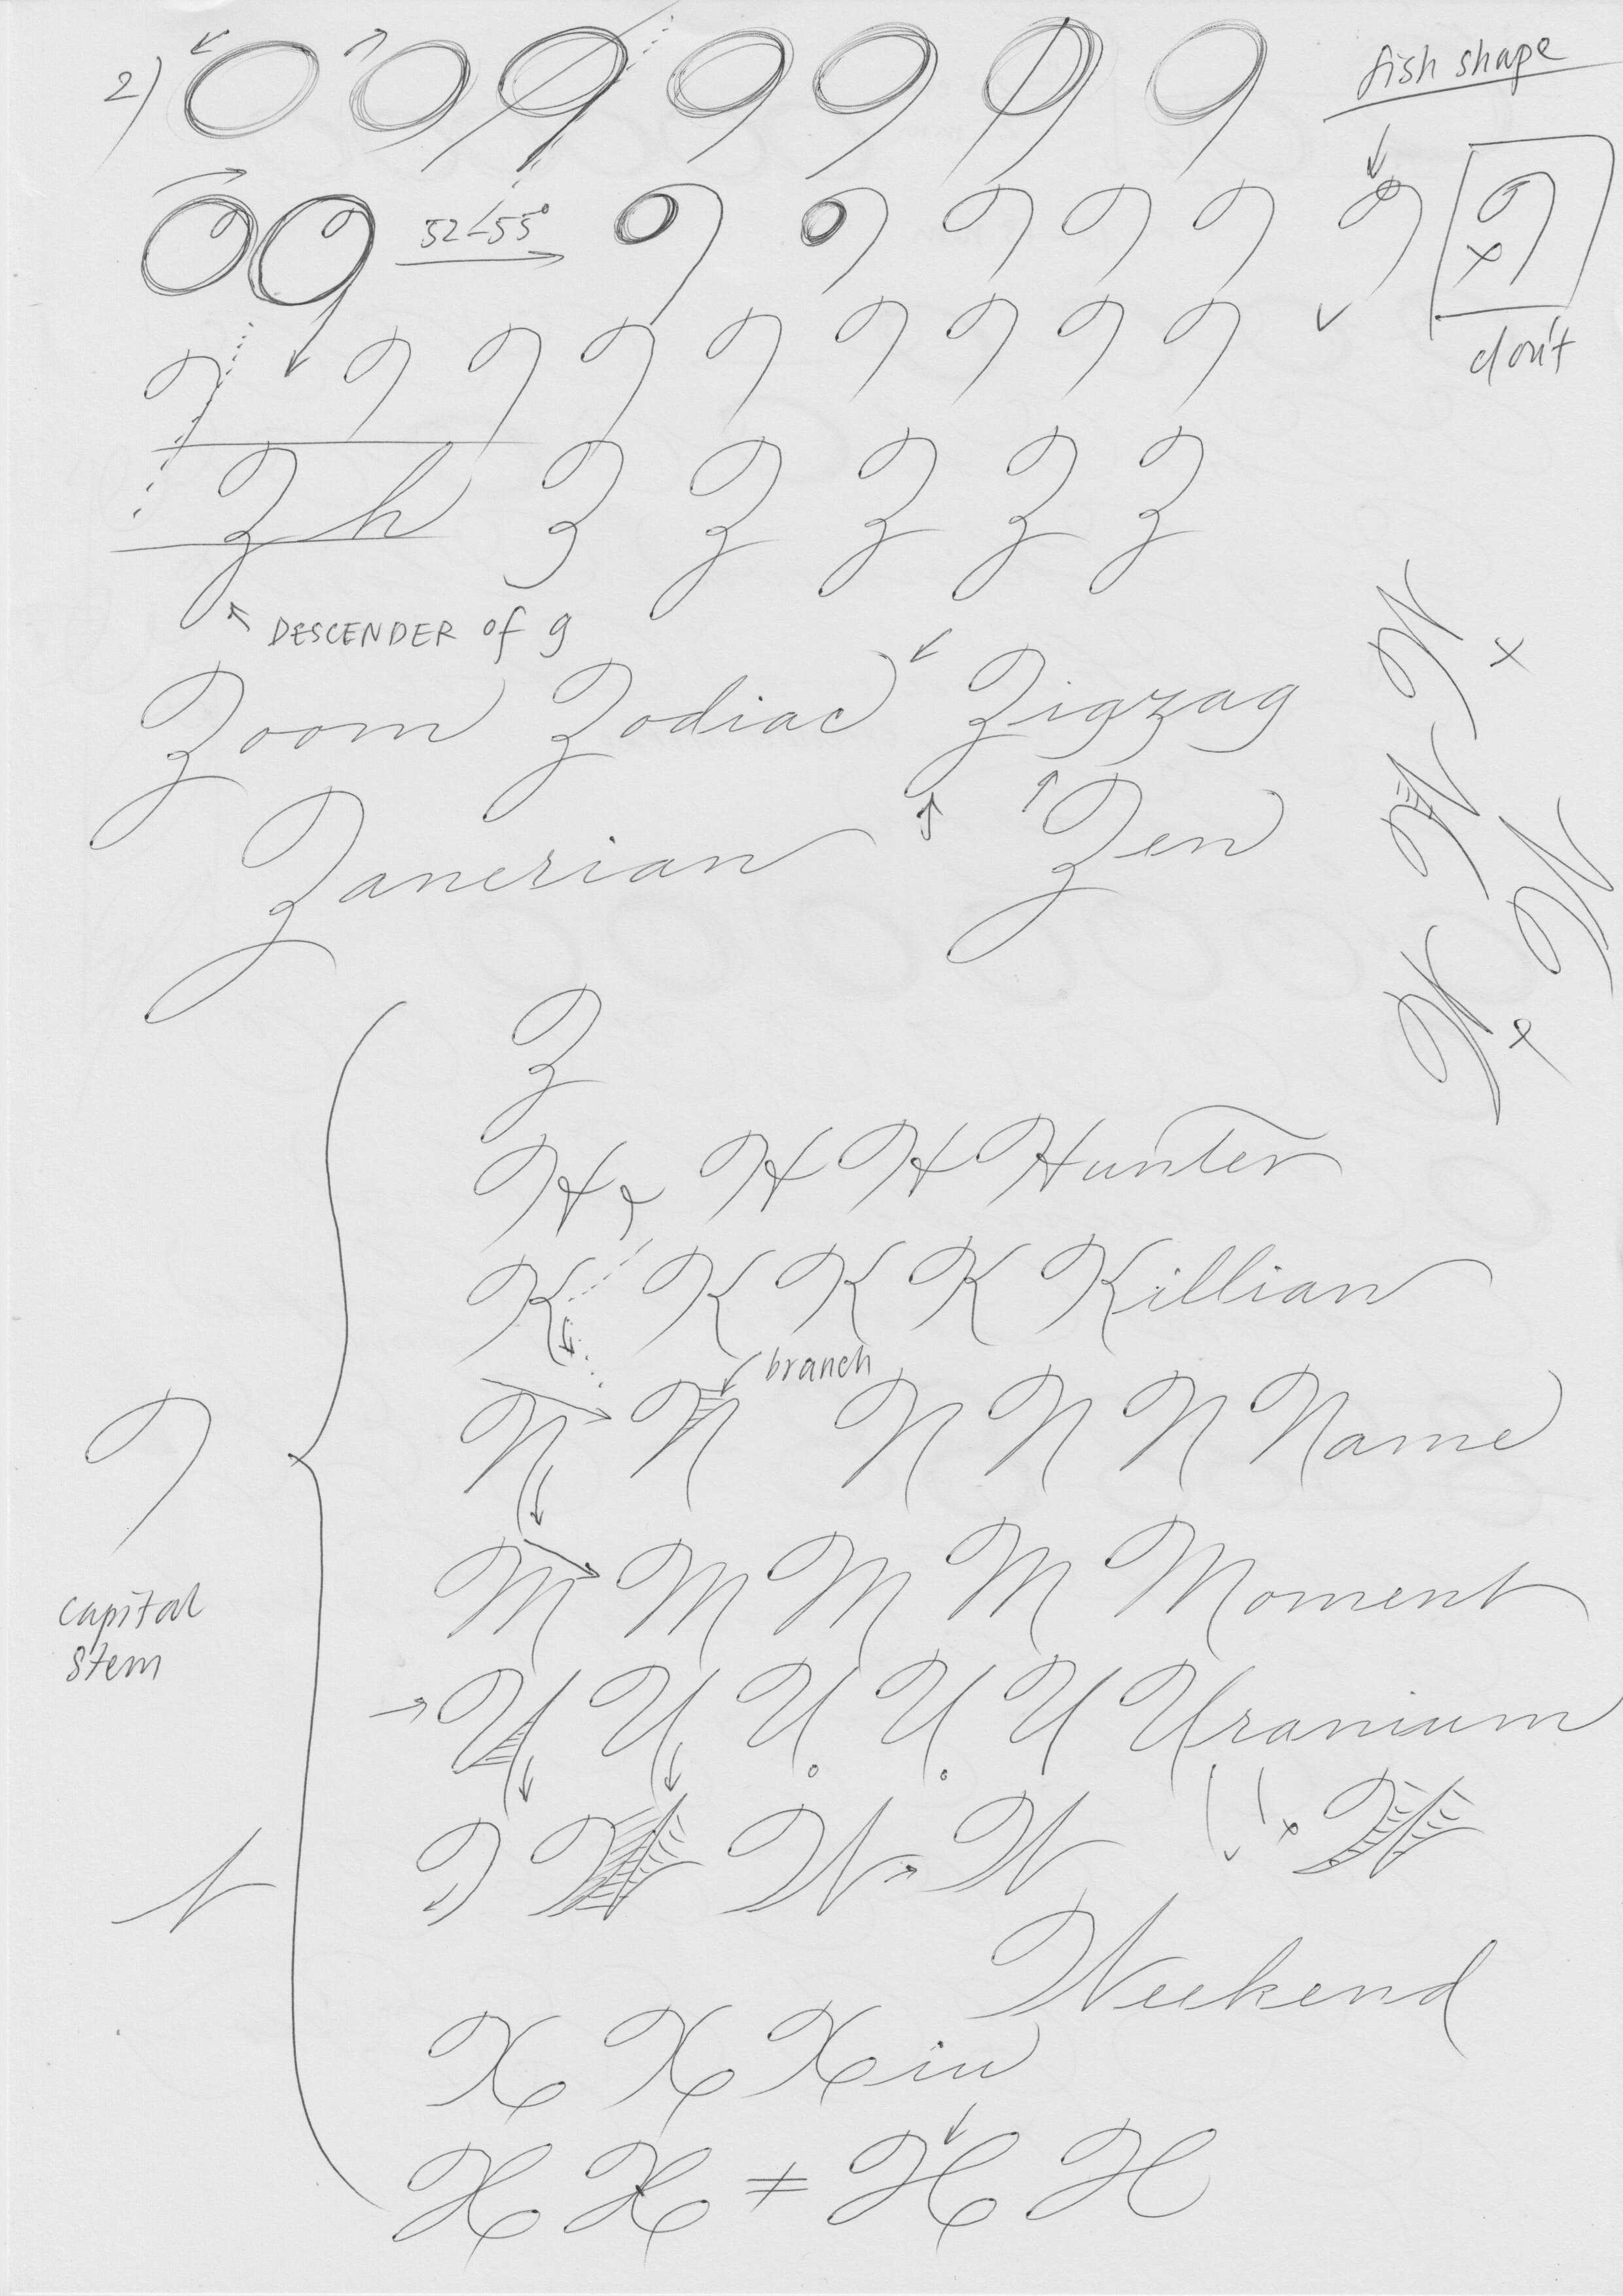 2)
fish shape
52∠55°
don't
Z h Z Z Z Z Z
DESCENDER of g
Zoom Zodiac Zigzag
Zanerian Zen
Z
H H H Hunter
K K K K Killian
branch
N N N N N Name
M M M M Moment
capital
stem
U U U U U Uranium
W W W W
Weekend
X X Xiu
X X ≠ H H